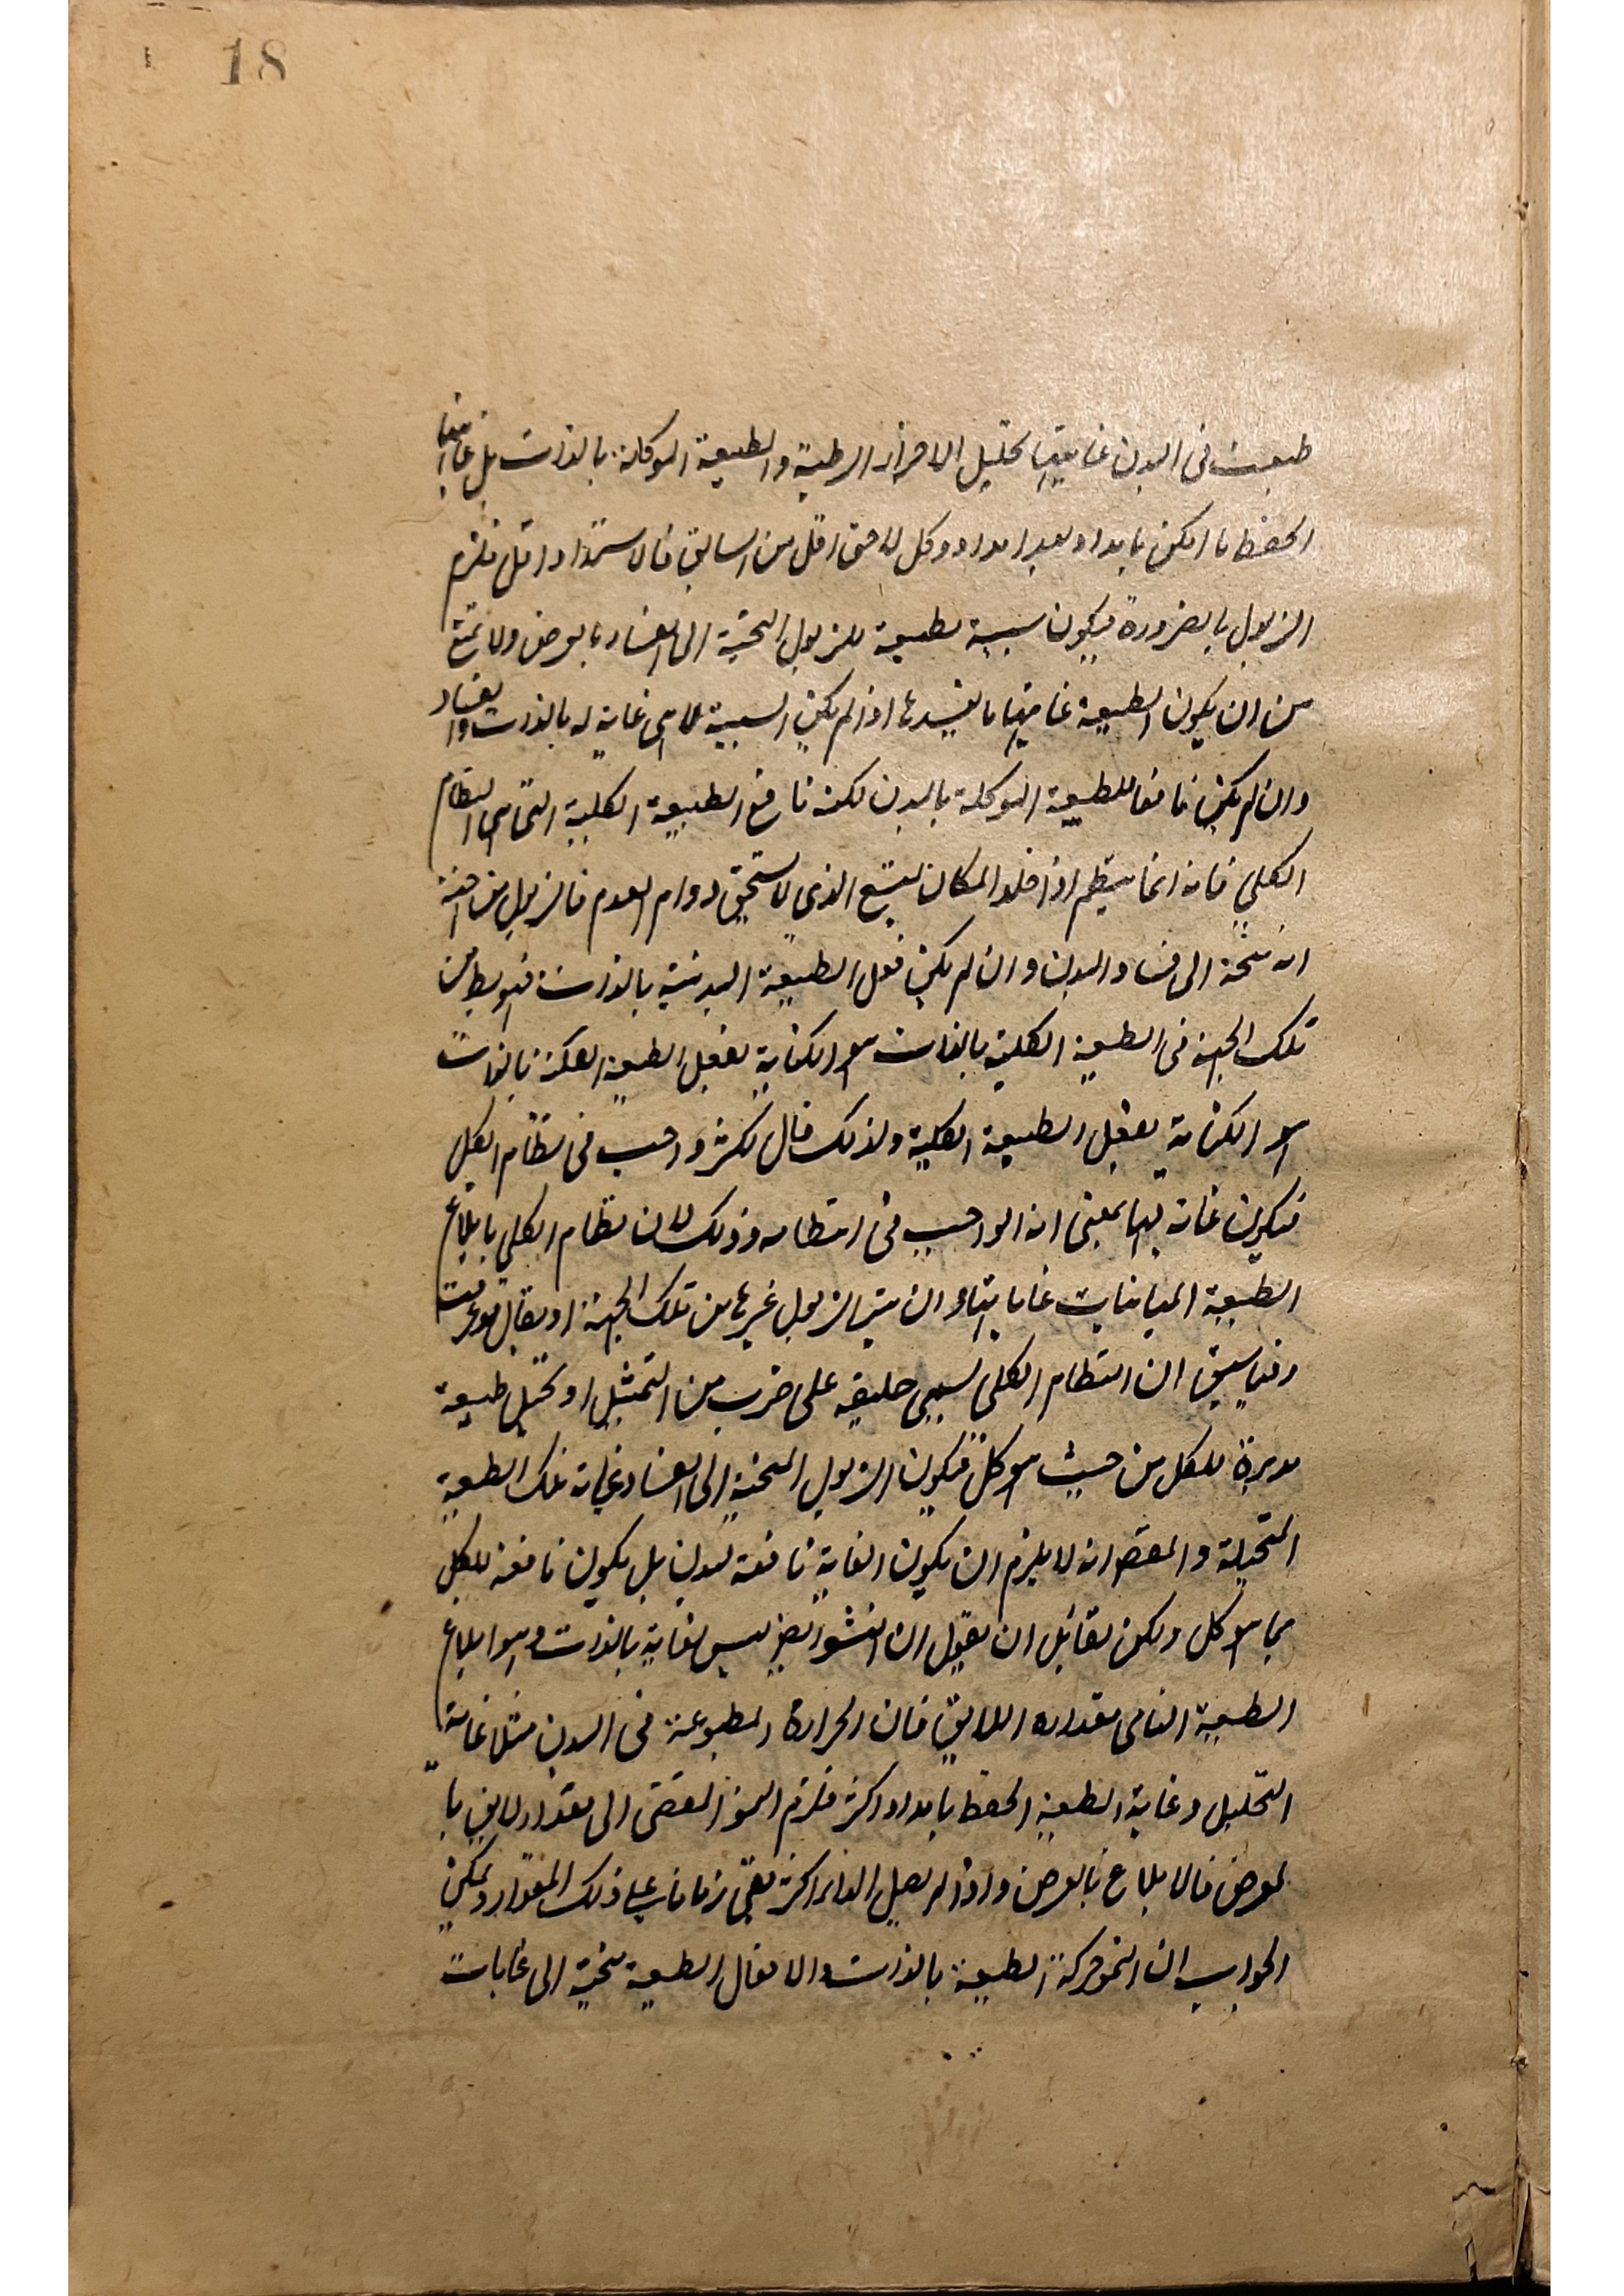 18
طبعت فى البدن غايتها تحليل الاجزاء الرطبة والطبيعة الموكلة بالذات بل غايتها
الحفظ ما امكن بامداد بعد امداد وكل لاحق اقل من السابق فالاستمداد اقل فلزم
الذبول بالضرورة فيكون سببية طبيعة للذبول المتجة الى الفساد بالعرض ولا يمتنع
من ان يكون الطبيعة غايتها ما يفسدها اذا لم يكن السببية لما هى غاية له بالذات والفساد
وان لم يكن نافعا للطبيعة الموكلة بالبدن لكنه نافع الطبيعة الكلية التى هى النظام
الكلي فانه انما ينتظم اذا خلو المكان ليتسع الذى لا يستحق دوام العدم فالذبول من جهة
انه متجة الى فساد البدن وان لم يكن فعل الطبيعة البدنية بالذات فهو بط من
تلك الجهة فى الطبيعة الكلية بالذات هو الكناية بفعل الطبيعة الفلكية بالذات
هو الكناية بفعل الطبيعة الكلية ولذلك قال لكنه واجب فى نظام الكل
فيكون غاية لها بمعنى انه الواجب فى انتظامه وذلك لان نظام الكلي بابلاغ
الطبيعة المباينات غاياتها وان يتم الذبول غيرها من تلك الجهة او يقال قد عرفت
فيما سبق ان النظام الكلى يسمى خليقة على ضرب من التمثيل او تخيل طبيعة
مدبرة للكل من حيث هو كل فيكون الذبول المتجة الى الفساد غاية تلك الطبيعة
المتخيلة والمقصود انه لا يلزم ان يكون الغاية نافعة للبدن بل يكون نافعة للكل
بما هو كل ولكن لقائل ان يقول ان النشو ايضا ليس لغاية بالذات وهو ابلاغ
الطبيعة النامى مقداره اللايق فان الحرارة المطبوعة فى البدن مثلا غاية
التحليل وغاية الطبيعة الحفظ بامداد اكثر فلزم النمو المقتضى الى مقدار لايق با
لعرض فالابلاغ بالعرض واذا لم يصل الوارد اكثر بقى زمانا على ذلك المقدار ويمكن
الجواب ان النمو حركة الطبيعة بالذات والافعال الطبيعة متجة الى غايات